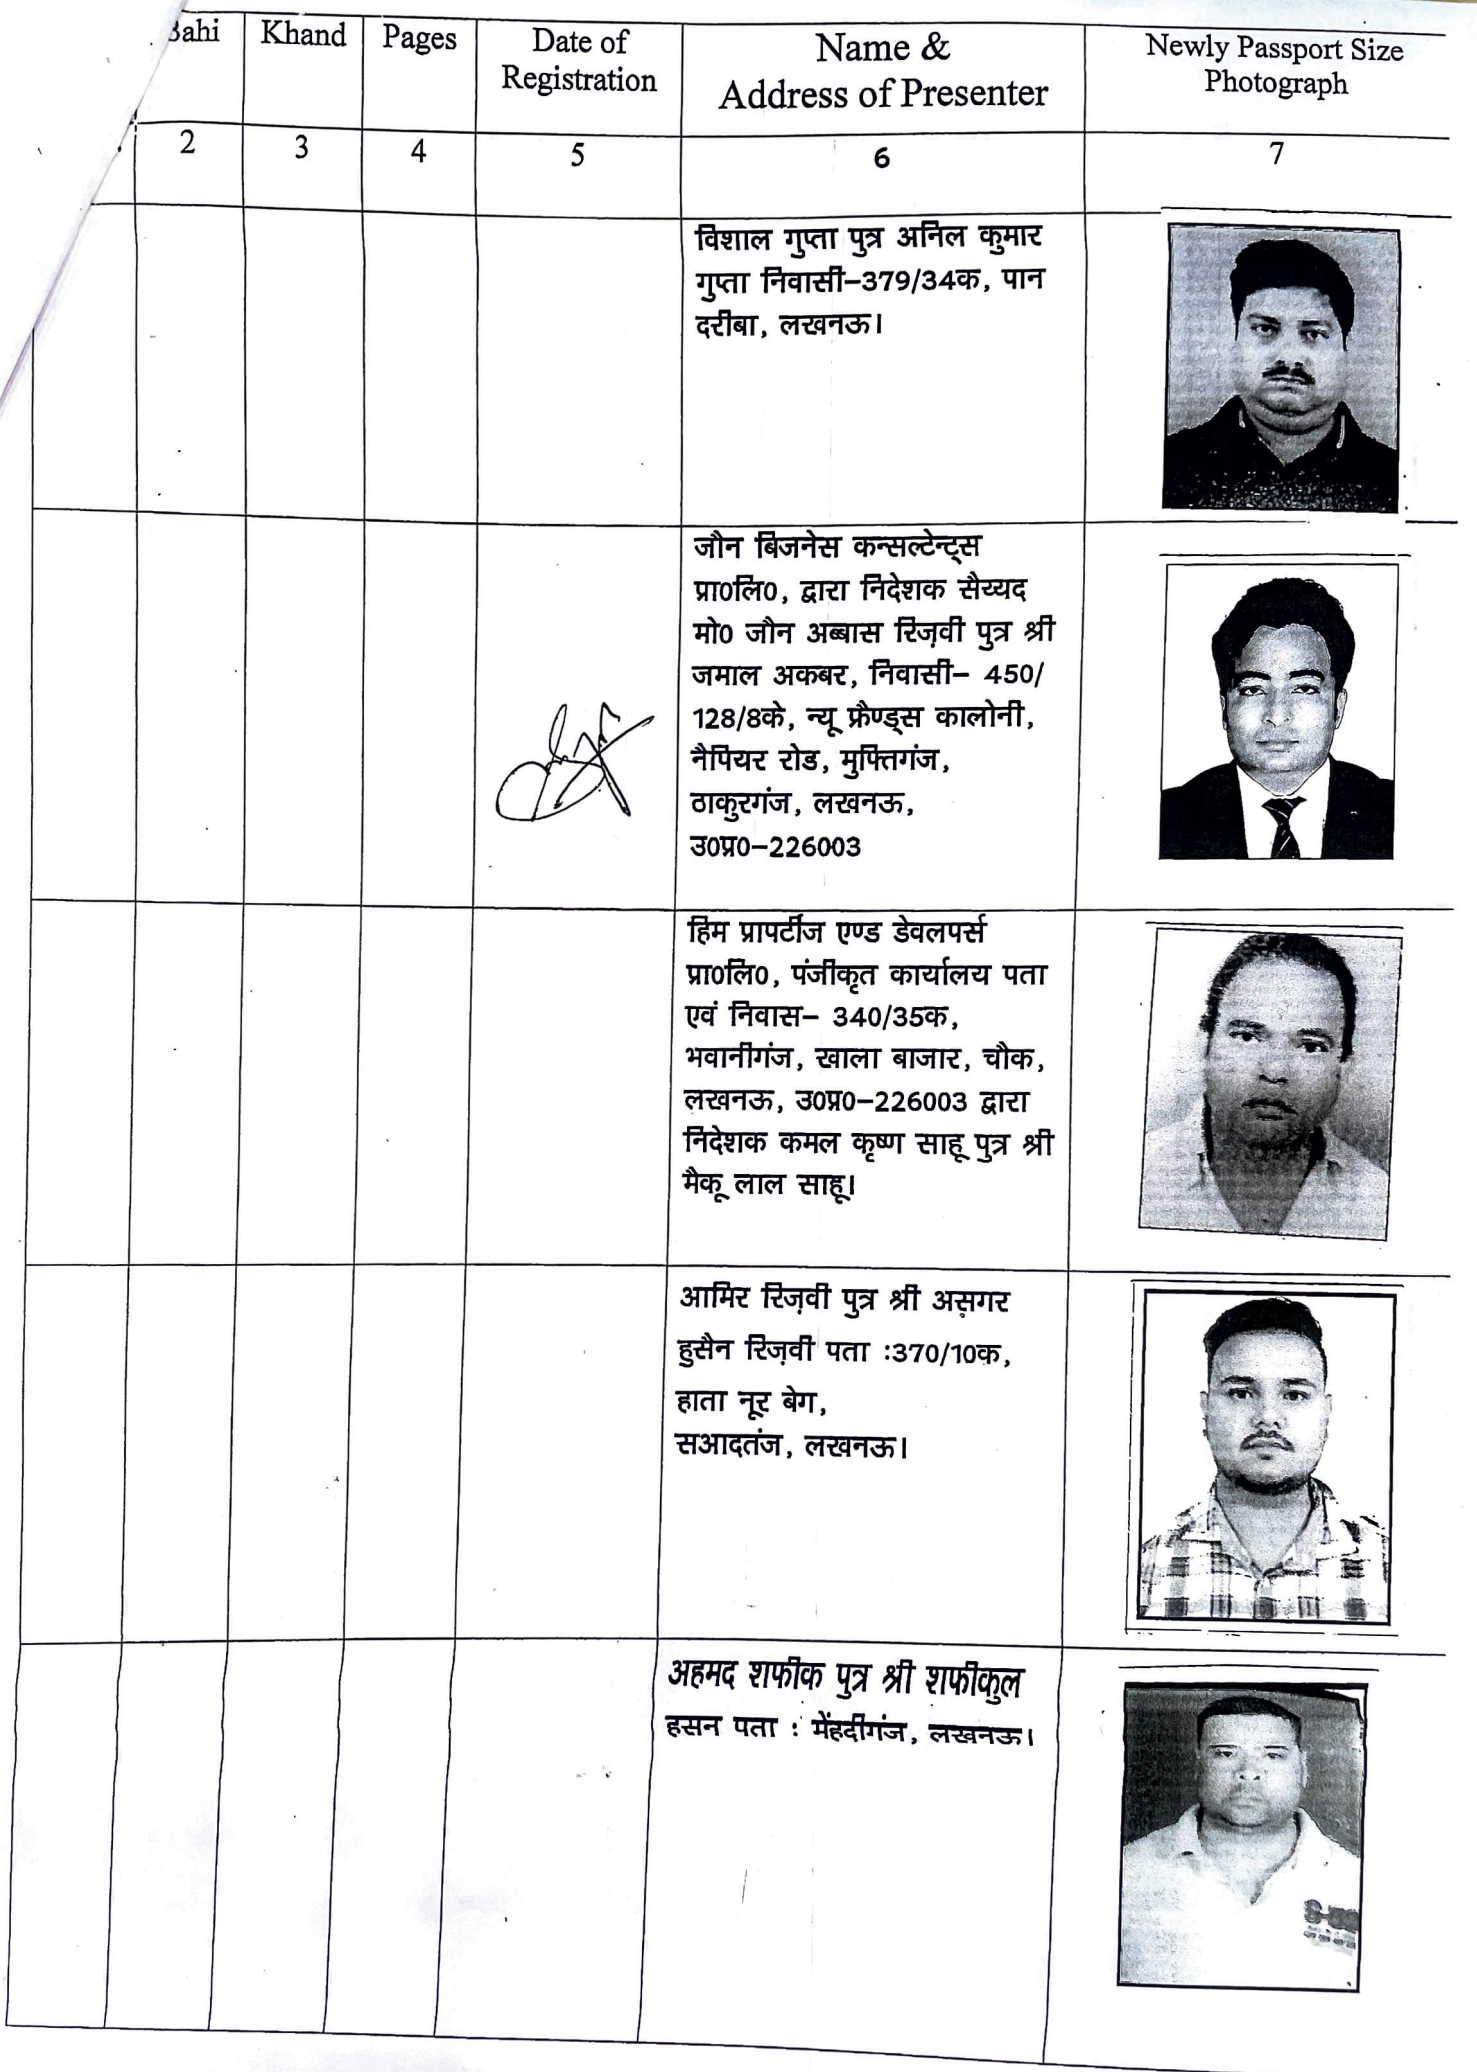 Khand
Pages
Date of
Registration
Name &
Address of Presenter
Newly Passport Size
Photograph
2
3
4
5
6
7
विशाल गुप्ता पुत्र अनिल कुमार
गुप्ता निवासी–379/34क, पान
दरीबा, लखनऊ।
जौन बिजनेस कन्सल्टेन्ट्स
प्रा0लि0, द्वारा निदेशक सैय्यद
मो0 जौन अब्बास रिज़वी पुत्र श्री
जमाल अकबर, निवासी– 450/
128/8के, न्यू फ्रैण्ड्स कालोनी,
नैपियर रोड, मुफ्तिगंज,
ठाकुरगंज, लखनऊ,
उ0प्र0–226003
हिम प्रापर्टीज एण्ड डेवलपर्स
प्रा0लि0, पंजीकृत कार्यालय पता
एवं निवास– 340/35क,
भवानीगंज, खाला बाजार, चौक,
लखनऊ, उ0प्र0–226003 द्वारा
निदेशक कमल कृष्ण साहू पुत्र श्री
मैकू लाल साहू।
आमिर रिज़वी पुत्र श्री असग़र
हुसैन रिज़वी पता :370/10क,
हाता नूर बेग,
सआदतंज, लखनऊ।
अहमद शफीक पुत्र श्री शफीकुल
हसन पता : मेंहदीगंज, लखनऊ।